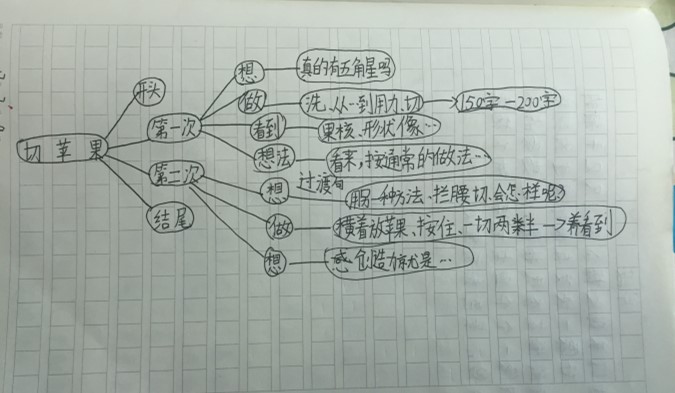 想 真的有五角星吗
开头
做 洗、从一到用力、切 150字—200字
第一次 看到 果核、形状像…
切苹果
想法 看来,按通常的做法…
第二次 过渡句
想 用另一种方法、拦腰切、会怎样呢?
结尾
做 横着放苹果、按住、一切两半 看到
想 感 创造力就是…